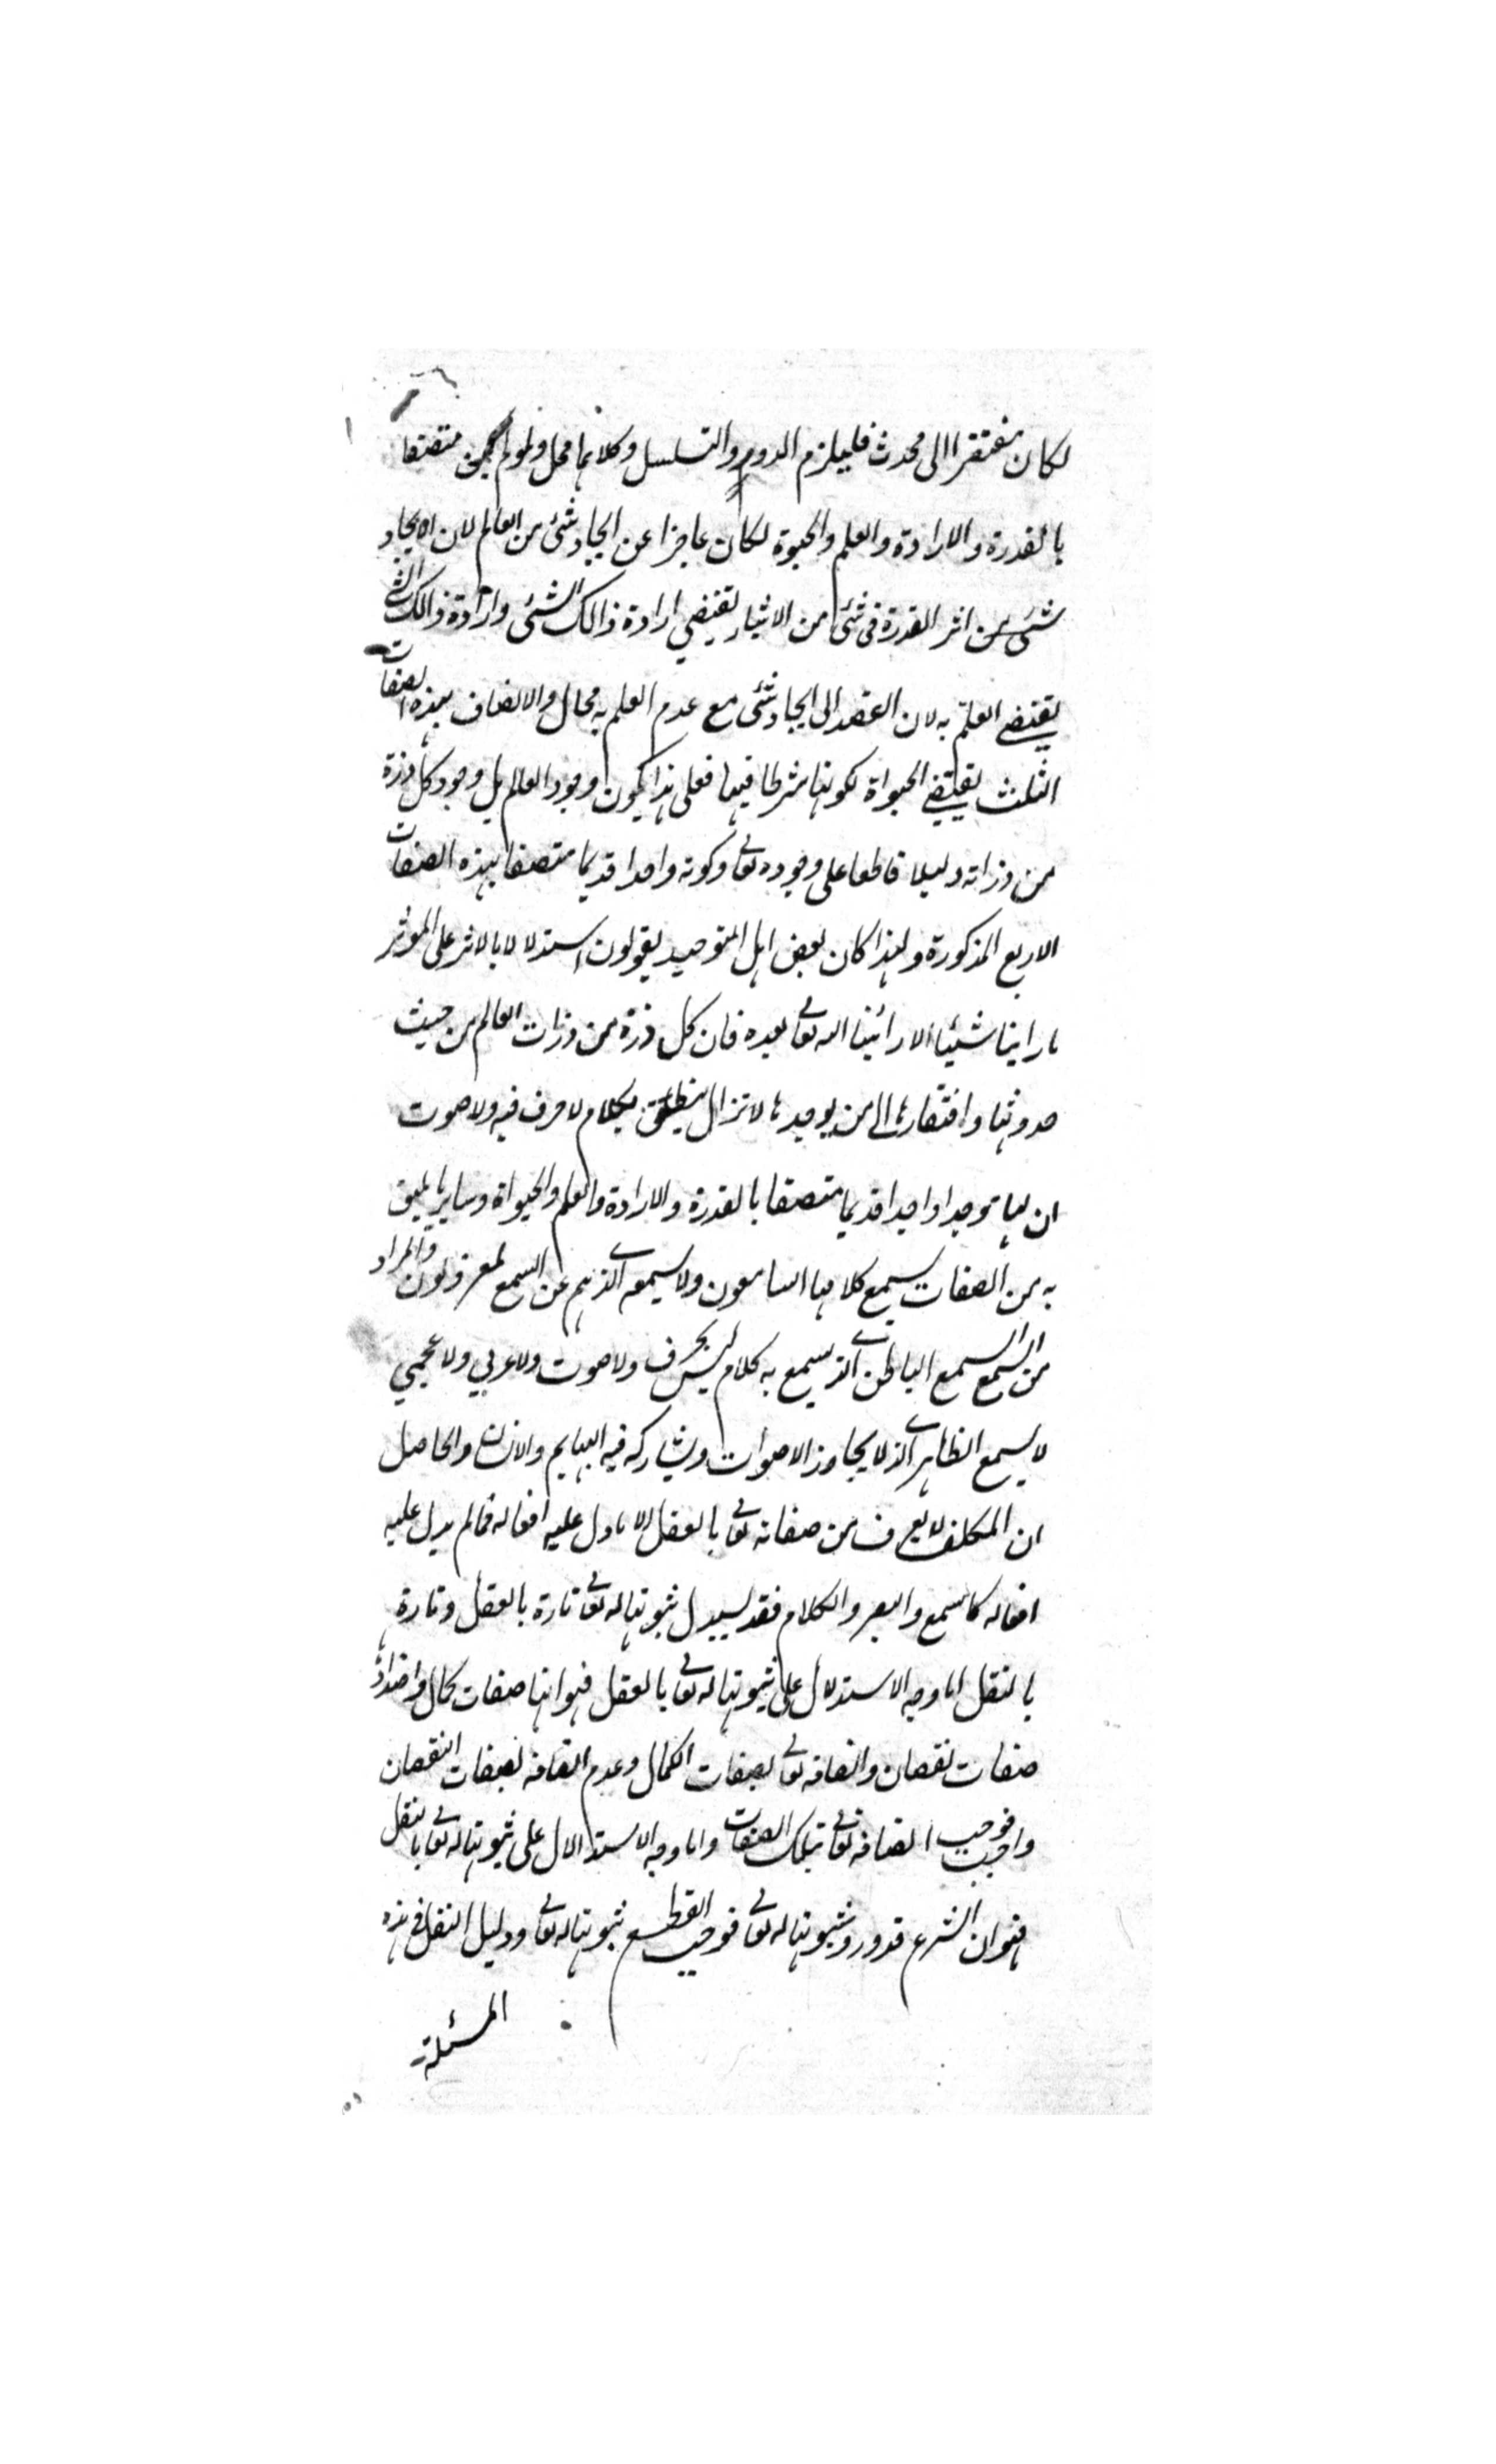 لكان مفتقرا الى محدث فليلزم الدور والتسلسل وكلاهما محل ولو لم يكن متصفا
بالقدرة والارادة والعلم والحيوة لكان عاجزا عن ايجاد شئ من العالم لان الايجاد
شئ من اثر القدرة فى شئ من الاشياء يقتضي ارادة ذالك الشئ وارادة ذالك الشئ
يقتضي العلم به لان القصد الى ايجاد شئ مع عدم العلم به محال والاتصاف بهذه الصفات
الثلث يقتضي الحيواة لكونها شرطا فيها فعلى هذا يكون وجود العالم بل وجود كل ذرة
من ذراته دليلا قاطعا على وجوده تعالى وكونه واحدا قديما متصفا بهذه الصفات
الاربع المذكورة ولهذا كان بعض اهل التوحيد يقولون استدلالا بالاثر على الموثر
ما راينا شيئا الا رائينا الله تعالى بعده فان كل ذرة من ذرات العالم من حيث
حدوثها وافتقارها الى من يوجدها لا تزال ينطق بكلام لا حرف فيه ولا صوت
ان لها موجدا واحدا قديما متصفا بالقدرة والارادة والعلم والحيواة وساير ما يليق
به من الصفات يسمع كلامها السامعون ولا يسمعه الذي هم عن السمع لمعزولون والمراد
من السمع السمع الباطن الذي يسمع به كلام ليس بحرف ولا صوت ولا عربي ولا عجمي
لا يسمع الظاهر الذي لا يجاوز الاصوات ويشاركه فيه البهايم والانسان والحاصل
ان المكلف لا يعرف من صفاته تعالى بالعقل الا ما دل عليه افعاله فما لم يدل عليه
افعاله كالسمع والبصر والكلام فقد يستدل ثبوتها له تعالى تارة بالعقل وتارة
بالنقل اما وجه الاستدلال على ثبوتها له تعالى بالعقل فهو انها صفات كمال واضدادها
صفات نقصان واتصافه تعالى بصفات الكمال وعدم اتصافه بصفات النقصان
واجب فوجب اتصافه تعالى بتلك الصفات واما وجه الاستدالال على ثبوتها له تعالى بالنقل
فهو ان الشرع قد ورد بثبوتها له تعالى فوجب القطع بثبوتها له تعالى ودليل النقل فى هذه
المسئلة